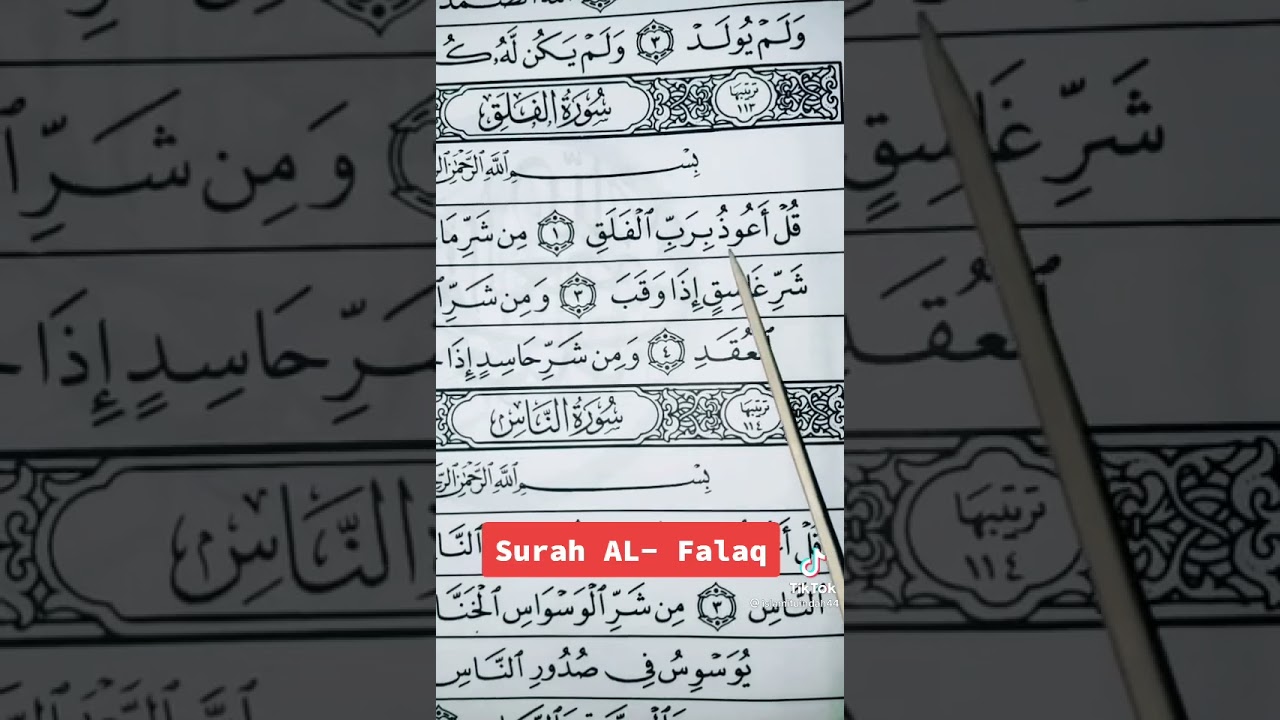 وَلَمْ يُولَدْ ٣ وَلَمْ يَكُن لَّهُۥ كُ
تَرْتِيبُهَا ١١٣
سُورَةُ الْفَلَقِ
بِسْمِ ٱللَّهِ ٱلرَّحْمَٰنِ
قُلْ أَعُوذُ بِرَبِّ ٱلْفَلَقِ ١ مِن شَرِّ مَا
شَرِّ غَاسِقٍ إِذَا وَقَبَ ٣ وَمِن شَرِّ
ٱلْعُقَدِ ٤ وَمِن شَرِّ حَاسِدٍ إِذَا
تَرْتِيبُهَا ١١٤
سُورَةُ النَّاسِ
بِسْمِ ٱللَّهِ ٱلرَّحْمَٰنِ
قُلْ
Surah AL- Falaq
TikTok
ٱلنَّاسِ ٣ مِن شَرِّ ٱلْوَسْوَاسِ ٱلْخَنَّا
يُوَسْوِسُ فِى صُدُورِ ٱلنَّاسِ